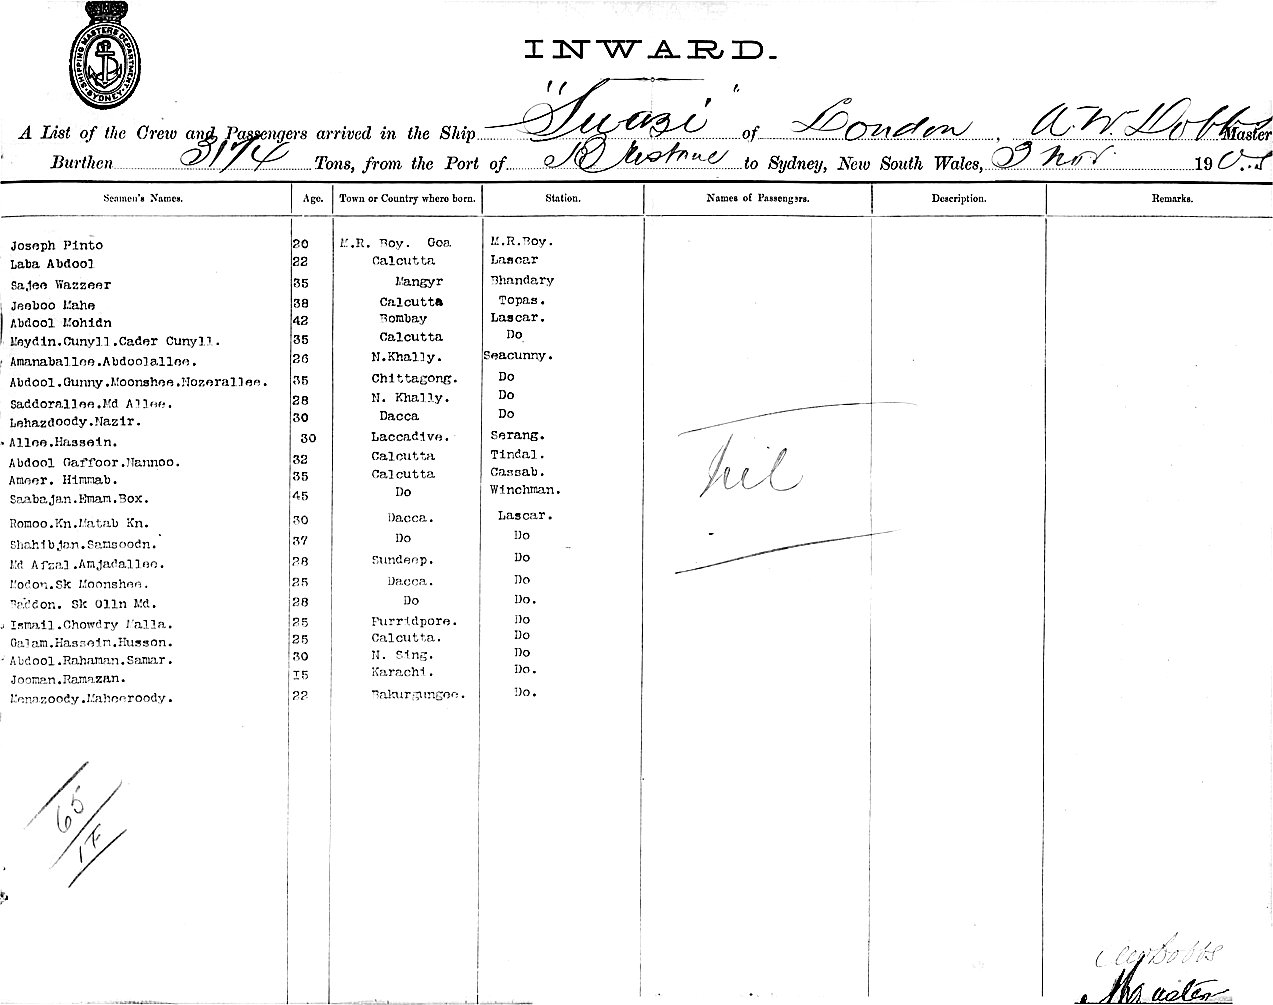 SHIPPING MASTERS DEPARTMENT SYDNEY
INWARD.
A List of the Crew and Passengers arrived in the Ship "Swazi" of London, A.W. Dobbs Master
Burthen 3174 Tons, from the Port of Brisbane to Sydney, New South Wales, 3 Nov 190
Seamen's Names. Age. Town or Country where born. Station. Names of Passengers. Description. Remarks.
Joseph Pinto 20 M.R. Boy. Goa M.R.Boy.
Laba Abdool 22 Calcutta Lascar
Sajee Wazzeer 35 Mangyr Bhandary
Jeeboo Mahe 38 Calcutta Topas.
Abdool Mohidn 42 Bombay Lascar.
Meydin.Cunyll.Cader Cunyll. 35 Calcutta Do
Amanaballee.Abdoolallee. 26 N.Khally. Seacunny.
Abdool.Gunny.Moonshee.Mozerallee. 35 Chittagong. Do
Saddorallee.Md Allee. 28 N. Khally. Do
Lehazdoody.Nazir. 30 Dacca Do
Allee.Hassein. 30 Laccadive. Serang.
Abdool Gaffoor.Nannoo. 32 Calcutta Tindal.
Ameer. Himmab. 35 Calcutta Cassab.
Saabajan.Emam.Box. 45 Do Winchman.
Romoo.Kn.Matab Kn. 30 Dacca. Lascar.
Shahibjan.Samsoodn. 37 Do Do
Md Afzal.Amjadallee. 28 Sundeep. Do
Modon.Sk Moonshee. 25 Dacca. Do
Baddon. Sk Olln Md. 28 Do Do.
Ismail.Chowdry Malla. 25 Furridpore. Do
Galam.Hassein.Husson. 25 Calcutta. Do
Abdool.Rahaman.Samar. 30 N. Sing. Do
Jooman.Ramazan. I5 Karachi. Do.
Monazoody.Maheeroody. 22 Bakurgungee. Do.
Nil
65
1F
AW Dobbs
Master